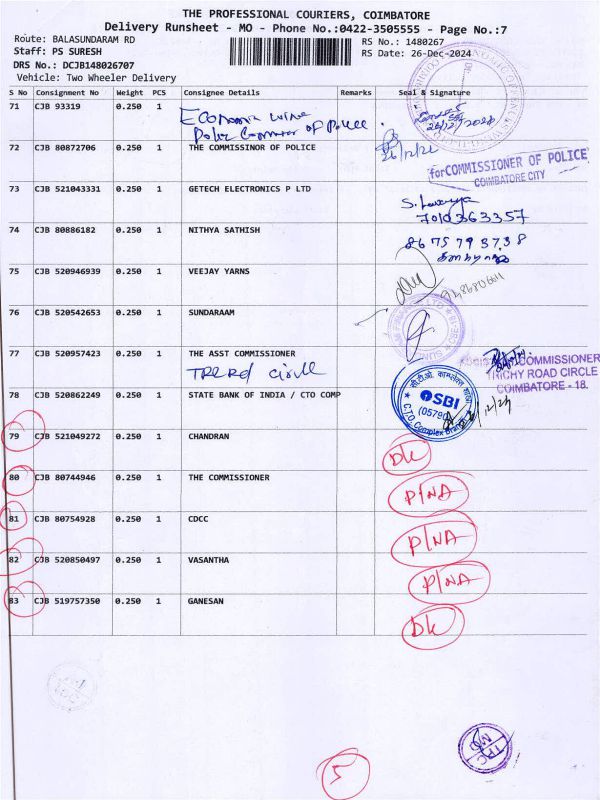 THE PROFESSIONAL COURIERS, COIMBATORE
Delivery Runsheet - MO - Phone No.:0422-3505555 - Page No.:7
Route: BALASUNDARAM RD
RS No.: 1480267
Staff: PS SURESH
RS Date: 26-Dec-2024
DRS No.: DCJB148026707
Vehicle: Two Wheeler Delivery
S No Consignment No Weight PCS Consignee Details Remarks Seal & Signature
71 CJB 93319 0.250 1
of Police
26/12/2024
72 CJB 80872706 0.250 1 THE COMMISSINOR OF POLICE
26/12/24
for COMMISSIONER OF POLICE
COIMBATORE CITY
73 CJB 521043331 0.250 1 GETECH ELECTRONICS P LTD
7010363357
74 CJB 80886182 0.250 1 NITHYA SATHISH
75 CJB 520946939 0.250 1 VEEJAY YARNS
76 CJB 520542653 0.250 1 SUNDARAAM
77 CJB 520957423 0.250 1 THE ASST COMMISSIONER
Circle
COMMISSIONER
TRICHY ROAD CIRCLE
COIMBATORE - 18.
78 CJB 520862249 0.250 1 STATE BANK OF INDIA / CTO COMP
SBI
C.T.O. Complex Branch
79 CJB 521049272 0.250 1 CHANDRAN DL
80 CJB 80744946 0.250 1 THE COMMISSIONER P/NA
81 CJB 80754928 0.250 1 CDCC P/NA
82 CJB 520850497 0.250 1 VASANTHA P/NA
83 CJB 519757350 0.250 1 GANESAN DL
5